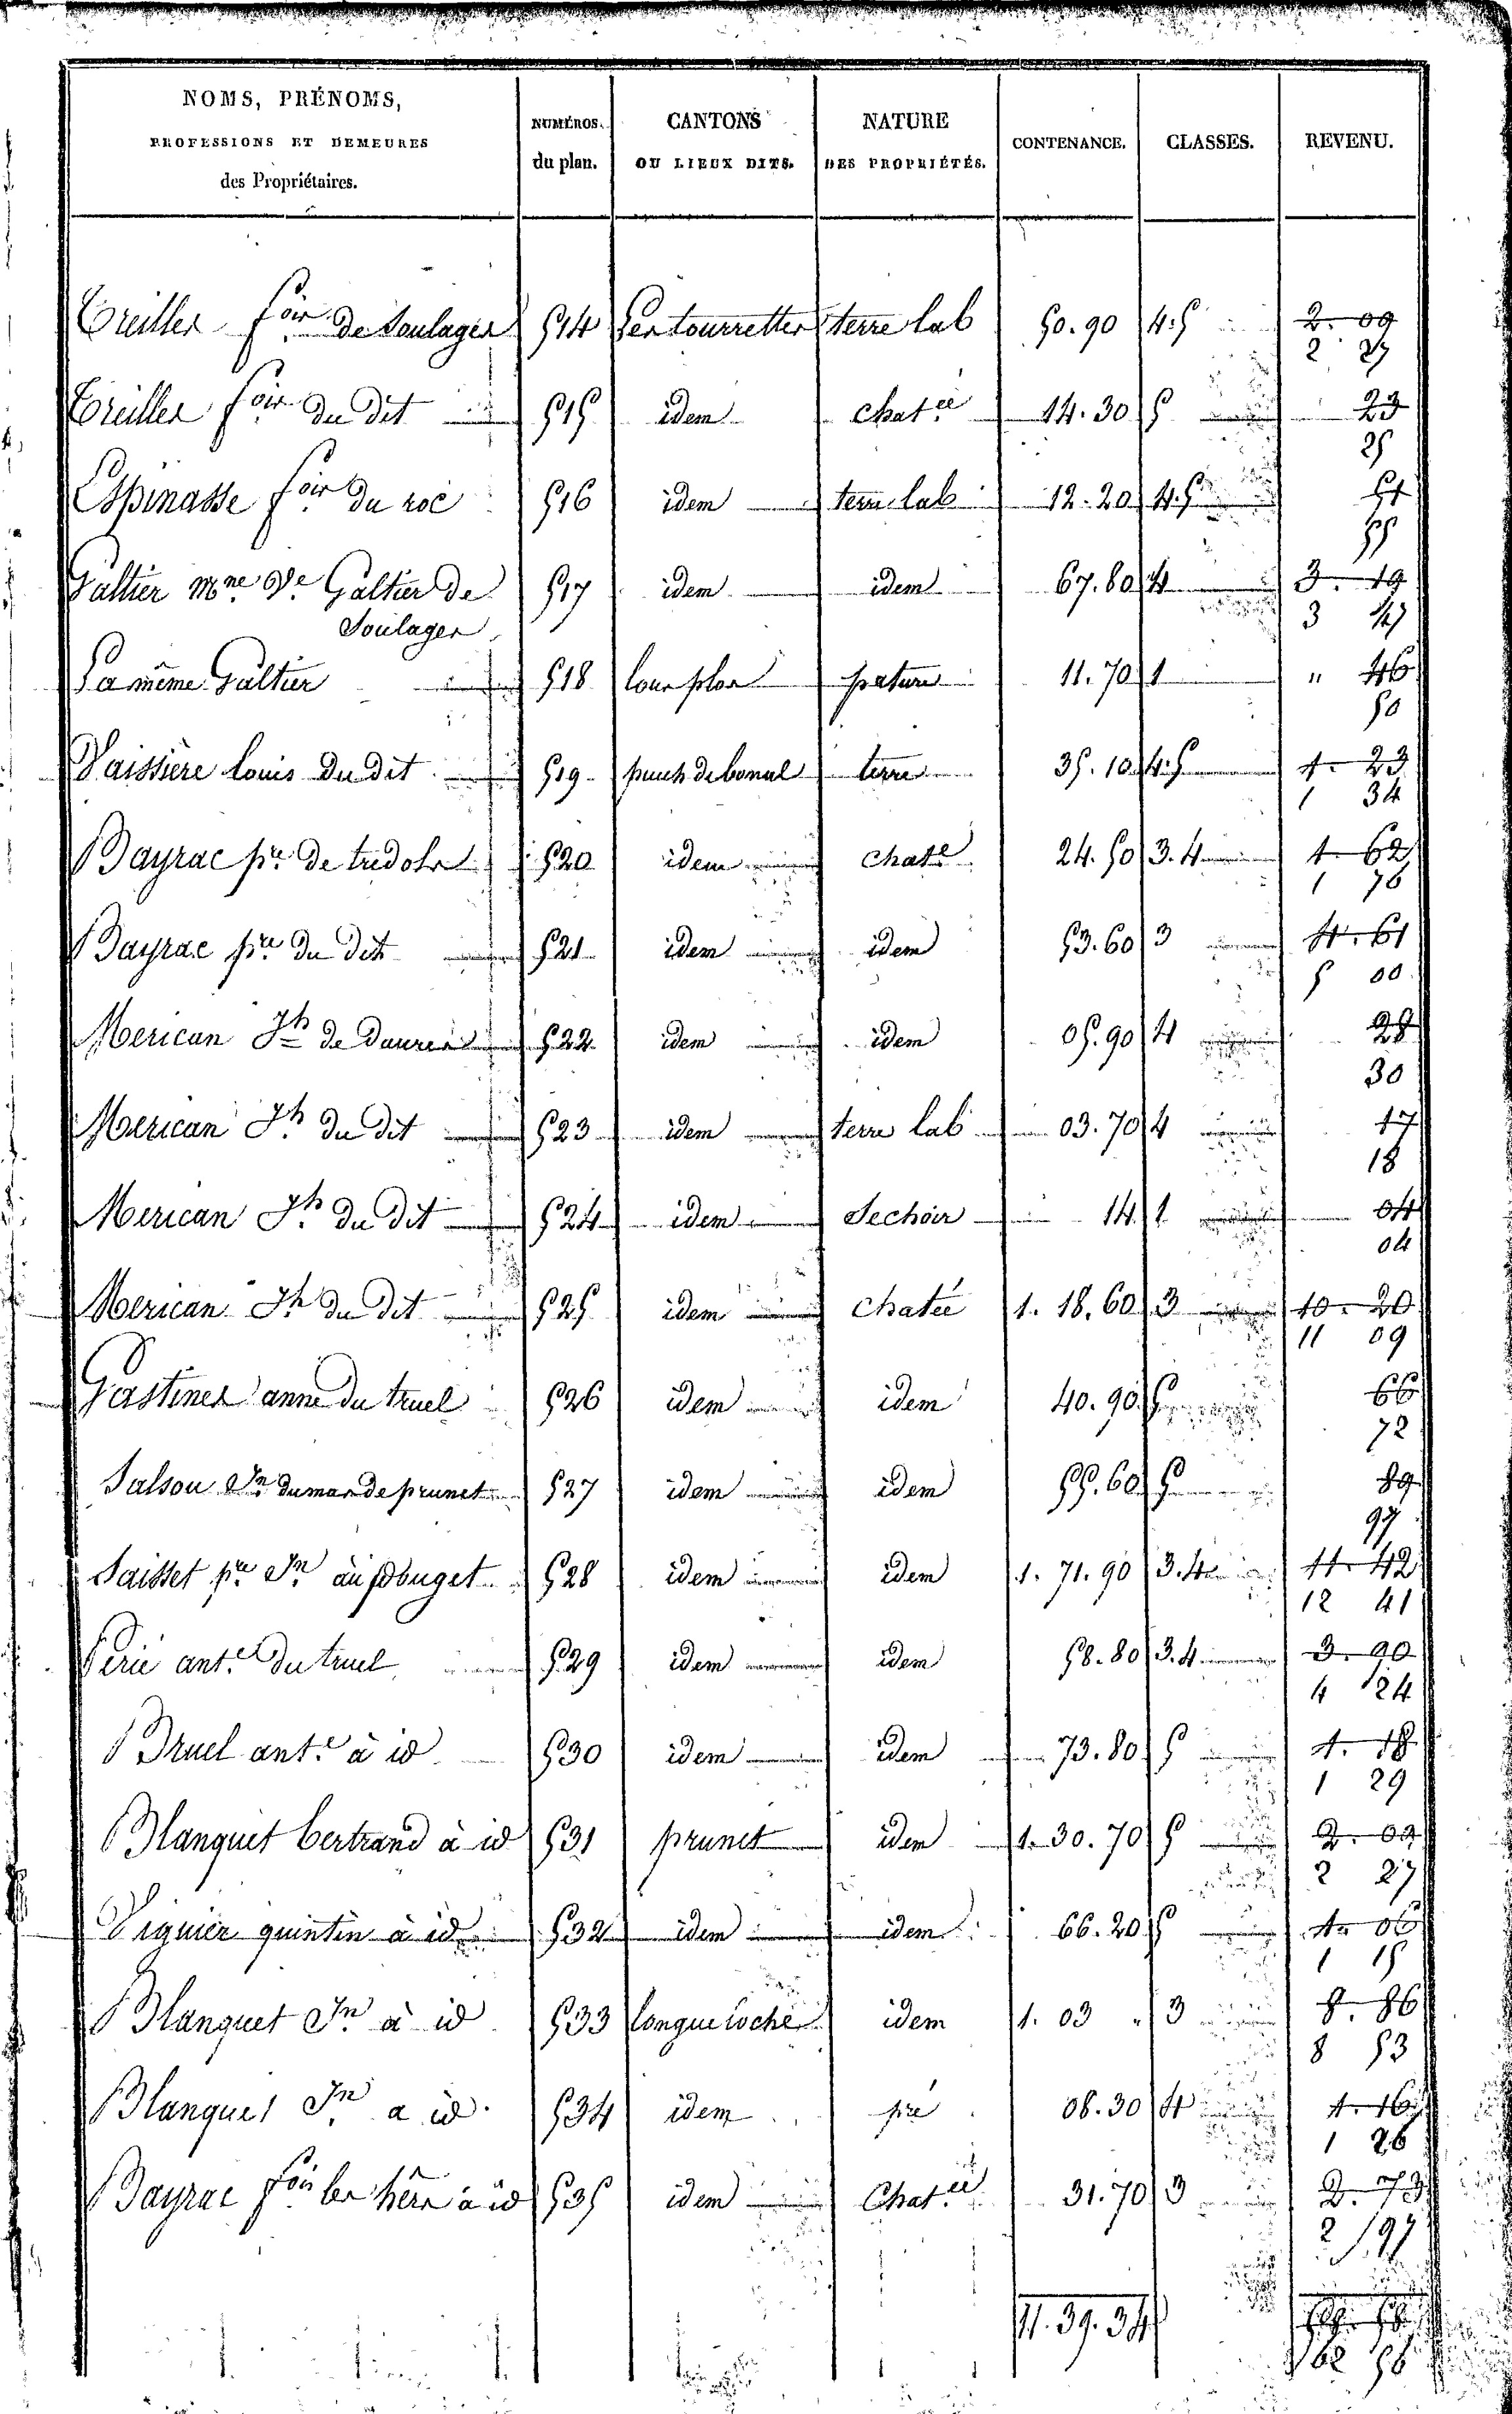 NOMS, PRÉNOMS,
PROFESSIONS ET DEMEURES
des Propriétaires.
NUMÉROS.
du plan.
CANTONS
OU LIEUX DITS.
NATURE
DES PROPRIÉTÉS.
CONTENANCE.
CLASSES.
REVENU.
Creiller fois de Soulages 514 Les tourrettes terre lab 50.90 4.5 2. 09
2 27
Creiller fois du dit 515 idem chatée 14.30 5 23
25
Espinasse fois du roc 516 idem terre lab 12.20 4.5 51
55
Galtier Mne Ve Galtier de 517 idem idem 67.80 4 3. 19
Soulages 3 47
La même Galtier 518 pature 11.70 1 " 46
50
Vaissière louis du dit 519 puech de bonal terre 35.10 4.5 1. 23
1 34
Bayrac pre de 520 idem chatée 24.50 3.4 1. 62
1 76
Bayrac pre du dit 521 idem idem 53.60 3 4. 61
5 00
Merican Jh de 522 idem idem 05.90 4 28
30
Merican Jh du dit 523 idem terre lab 03.70 4 17
18
Merican Jh du dit 524 idem Sechoir 14 1 04
04
Merican Jh du dit 525 idem chatée 1. 18.60 3 10. 20
11 09
Gastines anne du truel 526 idem idem 40.90 5 66
72
Salson Jn du mas de prunet 527 idem idem 55.60 5 89
97
Saisset pre Jn 528 idem idem 1. 71.90 3.4 11. 42
12 41
Perié ant.e du truel 529 idem idem 58.80 3.4 3. 90
4 24
Bruel ant.e à id 530 idem idem 73.80 5 1. 18
1 29
Blanquet bertrand à id 531 prunet idem 1. 30.70 5 2. 09
2 27
Viguier quintin à id 532 idem idem 66.20 5 1. 06
1 15
Blanquet Jn à id 533 longue roche idem 1. 03 " 3 8. 86
8 53
Blanquet Jn a id. 534 idem pré 08.30 4 1. 16
1 26
Bayrac fois les hérs à id 535 idem Chat.ée 31.70 3 2. 73
2 97
11. 39. 34
62 56